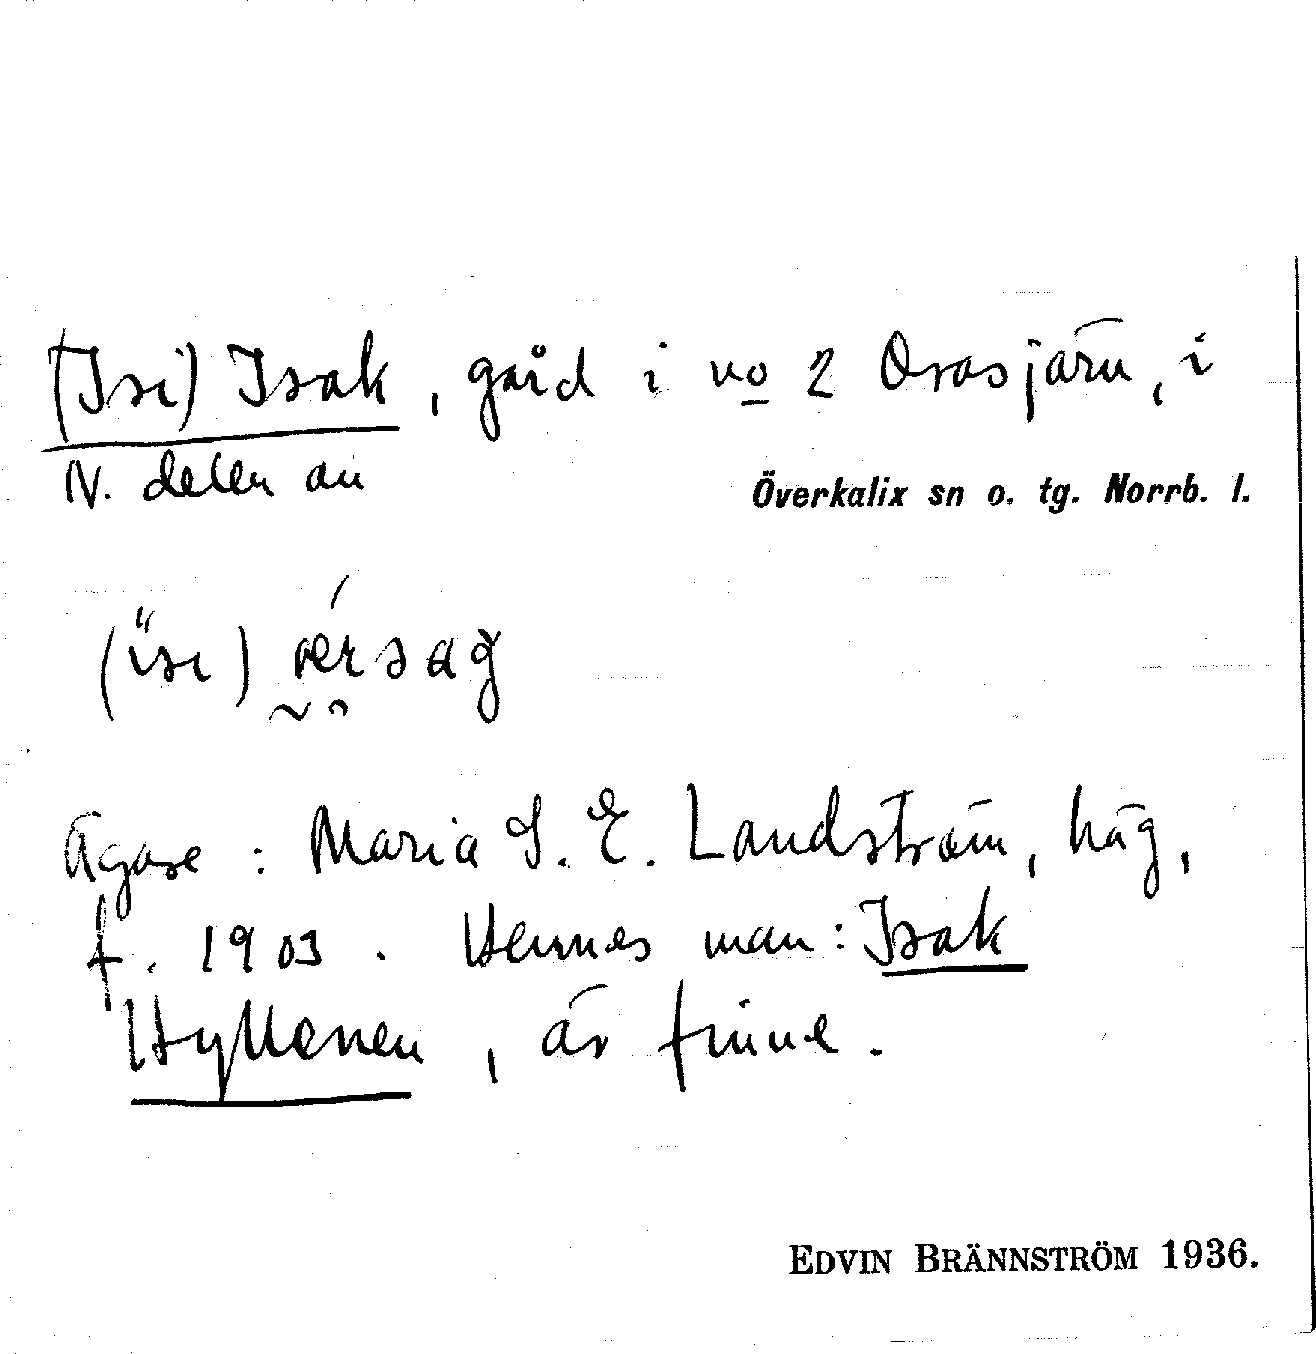 (Isi) Isak, gård i no 2 Orrasjärv, i
N. delen av
Överkalix sn o. tg. Norrb. l.
(isi)
Ägare: Maria S. E. Landström, häg,
f. 1903. Hennes man: Isak
Hyttenen, är finne.
EDVIN BRÄNNSTRÖM 1936.